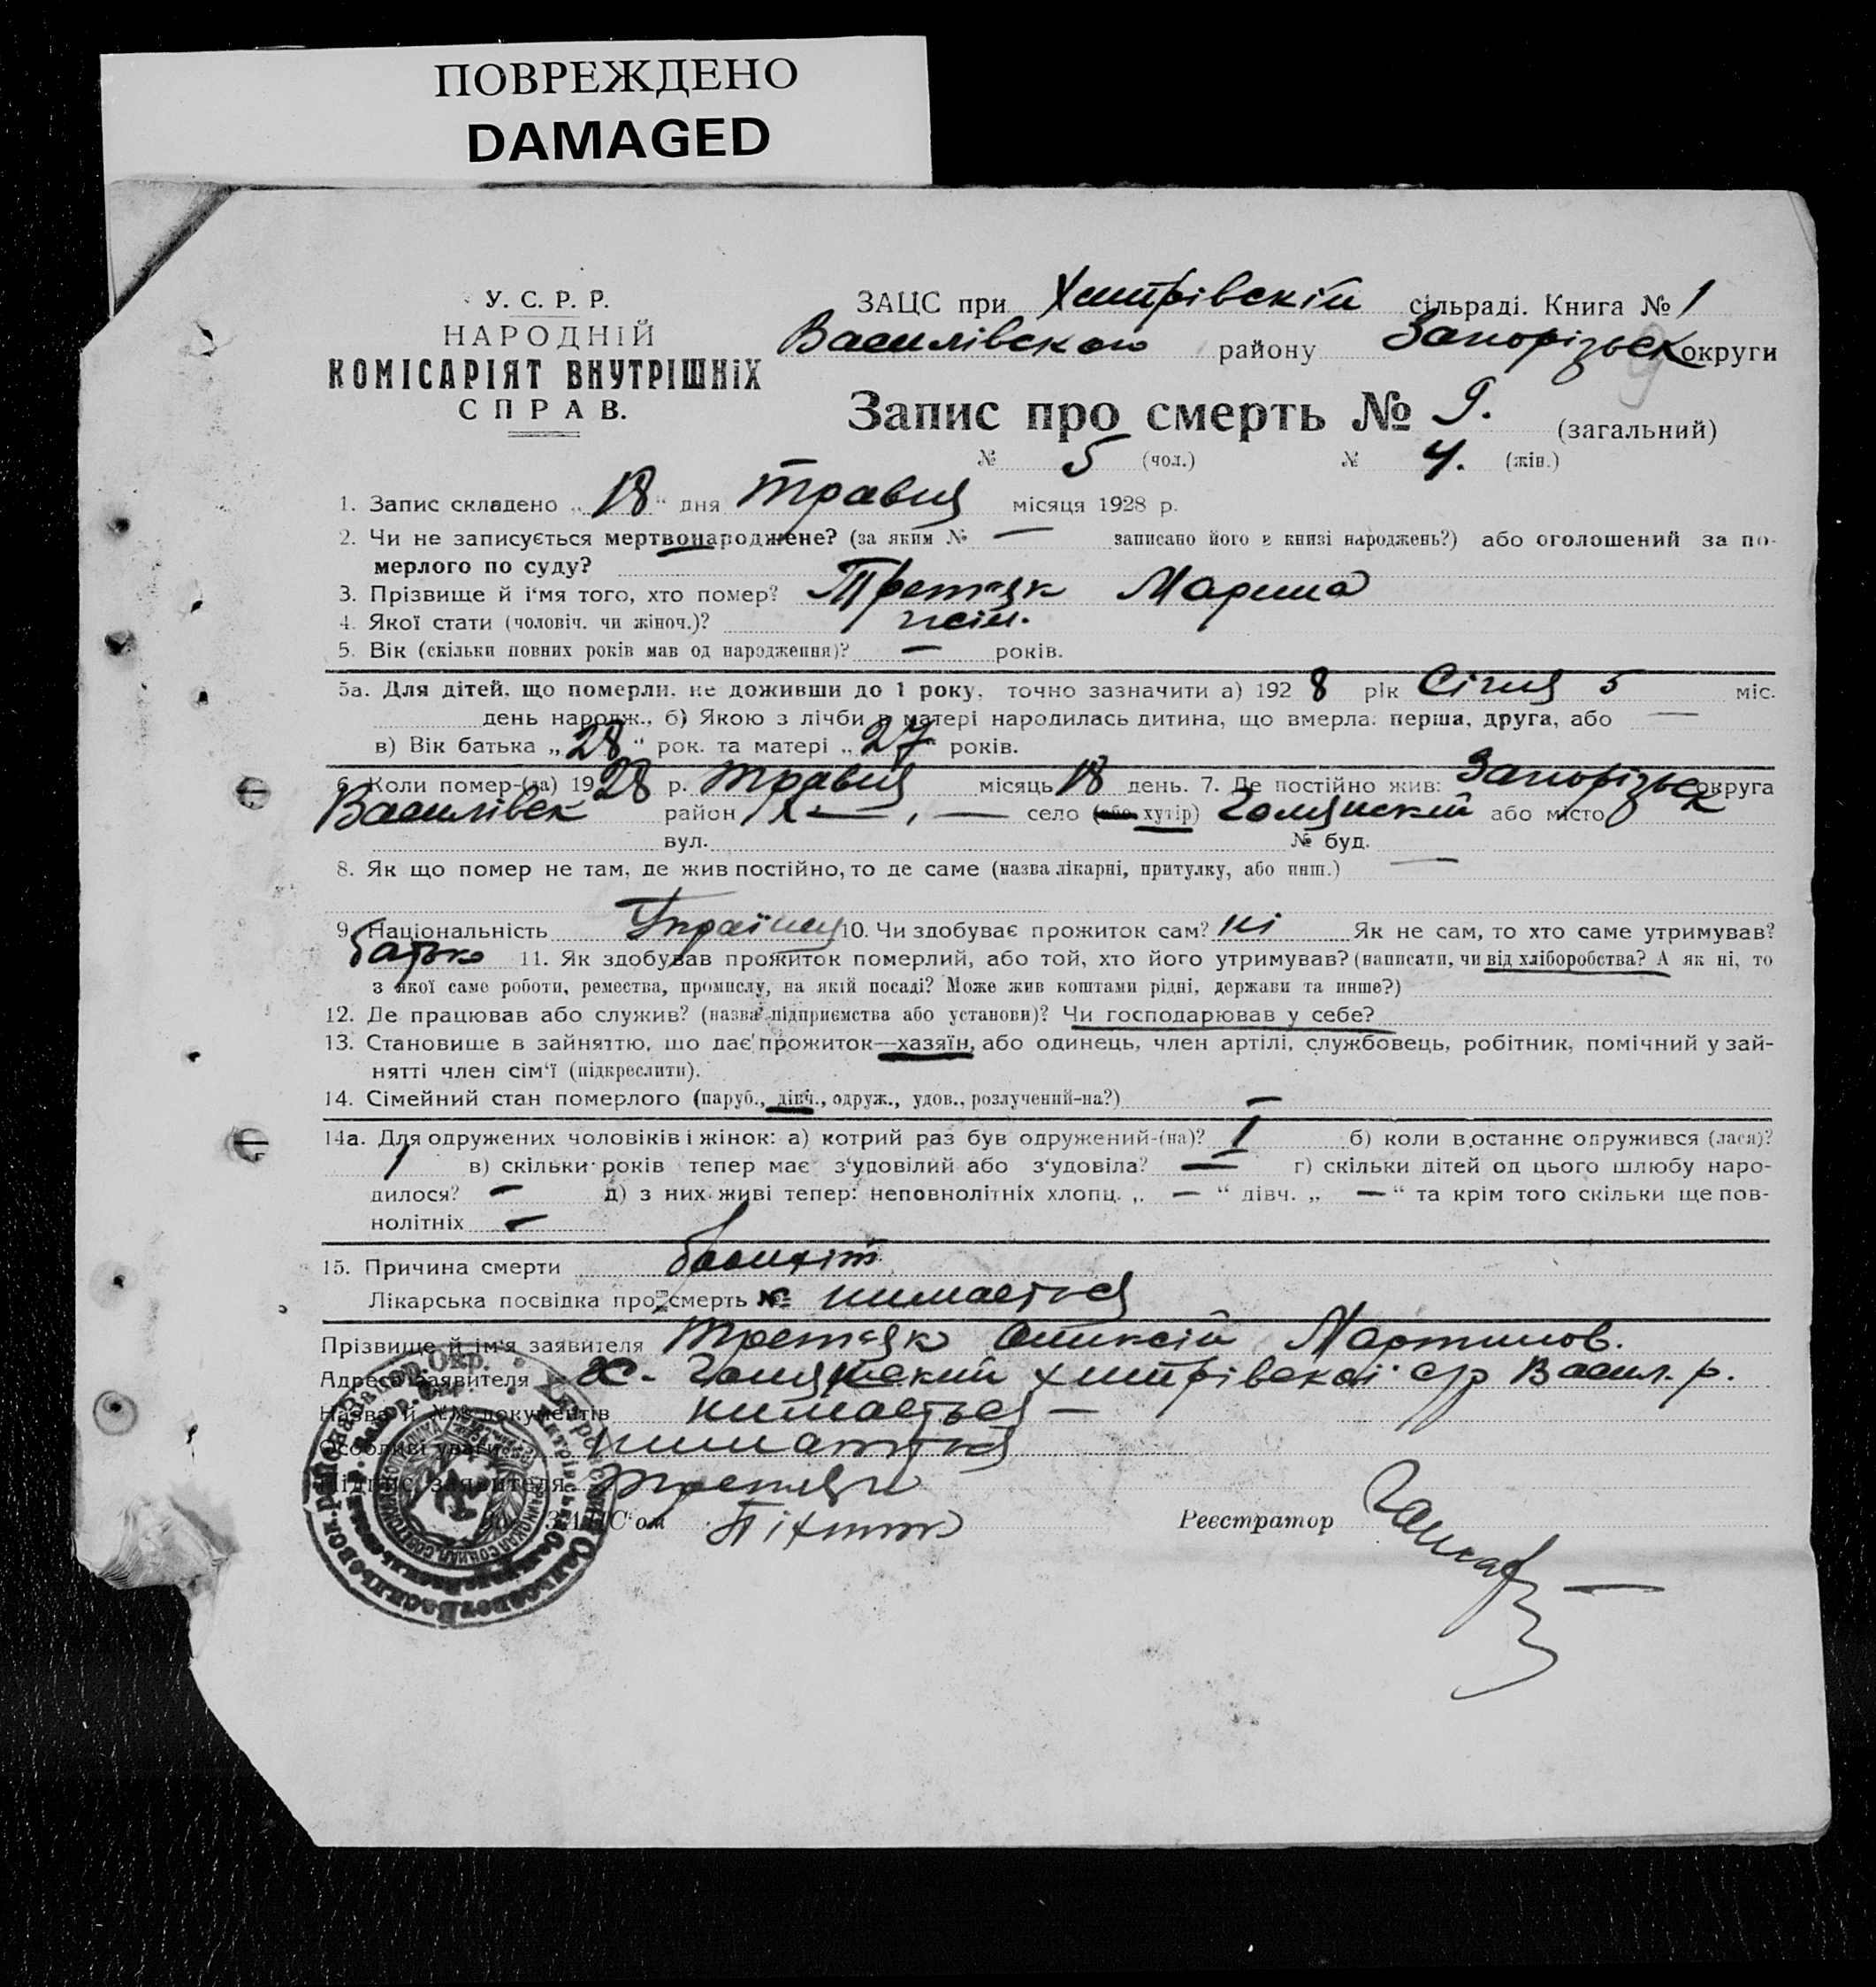 ПОВРЕЖДЕНО
DAMAGED
У. С. Р. Р.
НАРОДНІЙ
КОМІСАРІЯТ ВНУТРІШНІХ
СПРАВ.
ЗАЦС при Хитрівскій сільраді. Книга № 1
Василівского району Запорізьск округи
9
Запис про смерть № 9. (загальний)
№ 5 (чол.) № 4. (жін.)
1. Запис складено „18“ дня травня місяця 1928 р.
2. Чи не записується мертвонароджене? (за яким № — записано його в книзі народжень?) або оголошений за по-
мерлого по суду?
3. Прізвище й і'мя того, хто помер? Третяк Марина
4. Якої стати (чоловіч. чи жіноч.)? жін.
5. Вік (скільки повних років мав од народження)? — років.
5а. Для дітей, що померли, не доживши до 1 року, точно зазначити а) 1928 рік Січня 5 міс.
день народж., б) Якою з лічби в матері народилась дитина, що вмерла: перша, друга, або —
в) Вік батька „28“ рок. та матері „27“ років.
6. Коли помер-(ла) 1928 р. травня місяць 18 день. 7. Де постійно жив: Запорізьск округа
Василівск район село (або хутір) або місто
вул. № буд.
8. Як що помер не там, де жив постійно, то де саме (назва лікарні, притулку, або инш.) —
9. Національність 10. Чи здобуває прожиток сам? ні Як не сам, то хто саме утримував?
батько 11. Як здобував прожиток померлий, або той, хто його утримував? (написати, чи від хліборобства? А як ні, то
з якої саме роботи, ремества, промислу, на якій посаді? Може жив коштами рідні, держави та инше?)
12. Де працював або служив? (назва підприємства або установи)? Чи господарював у себе?
13. Становище в зайняттю, що дає прожиток—хазяїн, або одинець, член артілі, службовець, робітник, помічний у зай-
нятті член сім'ї (підкреслити).
14. Сімейний стан померлого (паруб., дівч., одруж., удов., розлучений-на?) —
14а. Для одружених чоловіків і жінок: а) котрий раз був одружений-(на)? б) коли востаннє одружився (лася)?
в) скільки років тепер має з'удовілий або з'удовіла? — г) скільки дітей од цього шлюбу наро-
дилося? — д) з них живі тепер: неповнолітніх хлопц. „—“ дівч. „—“ та крім того скільки ще пов-
нолітніх —
15. Причина смерти бронхіт
Лікарська посвідка про смерть № нимаєтця
Прізвище й ім'я заявителя Третяк Оликсій Мартинов.
Адреса заявителя х. Хитрівскої с/р Васил. р.
Назва й №№ документів нимаєтьця —
Особливі уваги нимаєтця
Підпис заявителя Третяк
ЗАЦС'ом
Реєстратор